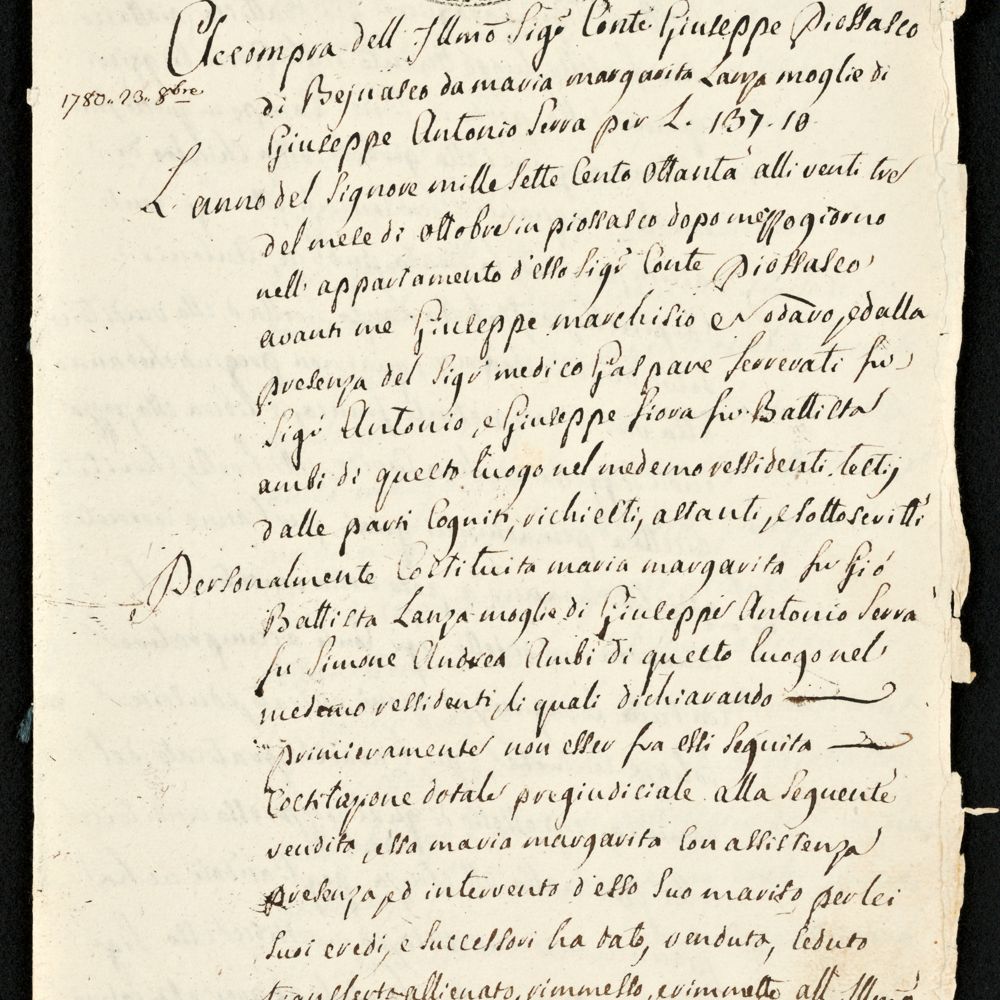 Accompra dell' Illmo Sigr Conte Giuseppe Piossasco
1780. 23. 8bre
di Bejnasco da maria margarita Lanza moglie di
Giuseppe Antonio Serra per L. 137.10
L'anno del Signore mille sette Cento ottanta alli venti tre
del mese di ottobre in piossasco dopo mezzo giorno
nell' appartamento d'esso Sigr Conte Piossasco
avanti me Giuseppe marchisio Nodaro, ed alla
presenza del Sigr medico Gaspare ferrerati fu
Sigr Antonio, e Giuseppe fiora fu Battista
ambi di questo luogo nel medemo ressidenti testij
dalle parti Cogniti, richiesti, astanti, e sottoscritti
Personalmente Costituita maria margarita fu Gió
Battista Lanza moglie di Giuseppe Antonio Serra
fu Simone Andrea Ambi di questo luogo nel
medemo ressidenti, li quali dichiarando
primieramente non esser fra essi seguita
Costitazione dotale pregiudiciale alla seguente
vendita, essa maria margarita Con assistenza
presenza, ed intervento d'esso suo marito per lei
suoi eredi, e successori ha dato, venduto, Ceduto
transferto allienato, rimmesso, e rimmette all' Illmo